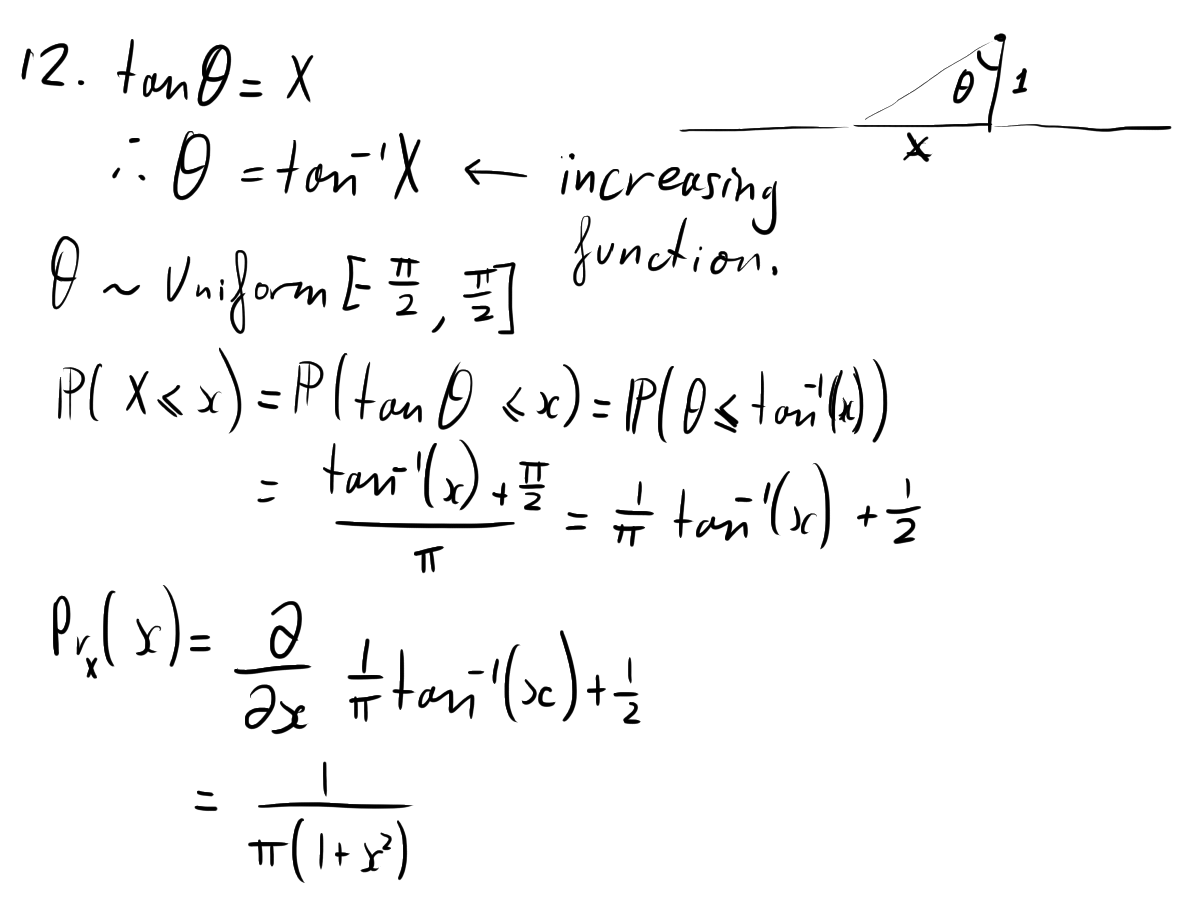 12. tanθ = X
θ 1
x
∴ θ = tan⁻¹X ← increasing
function.
θ ~ Uniform [-π/2, π/2]
ℙ(X ⩽ x) = ℙ(tan θ ⩽ x) = ℙ(θ ⩽ tan⁻¹(x))
= (tan⁻¹(x) + π/2)/π = 1/π tan⁻¹(x) + 1/2
Pr_X(x) = ∂/∂x 1/π tan⁻¹(x) + 1/2
= 1/(π(1+x²))